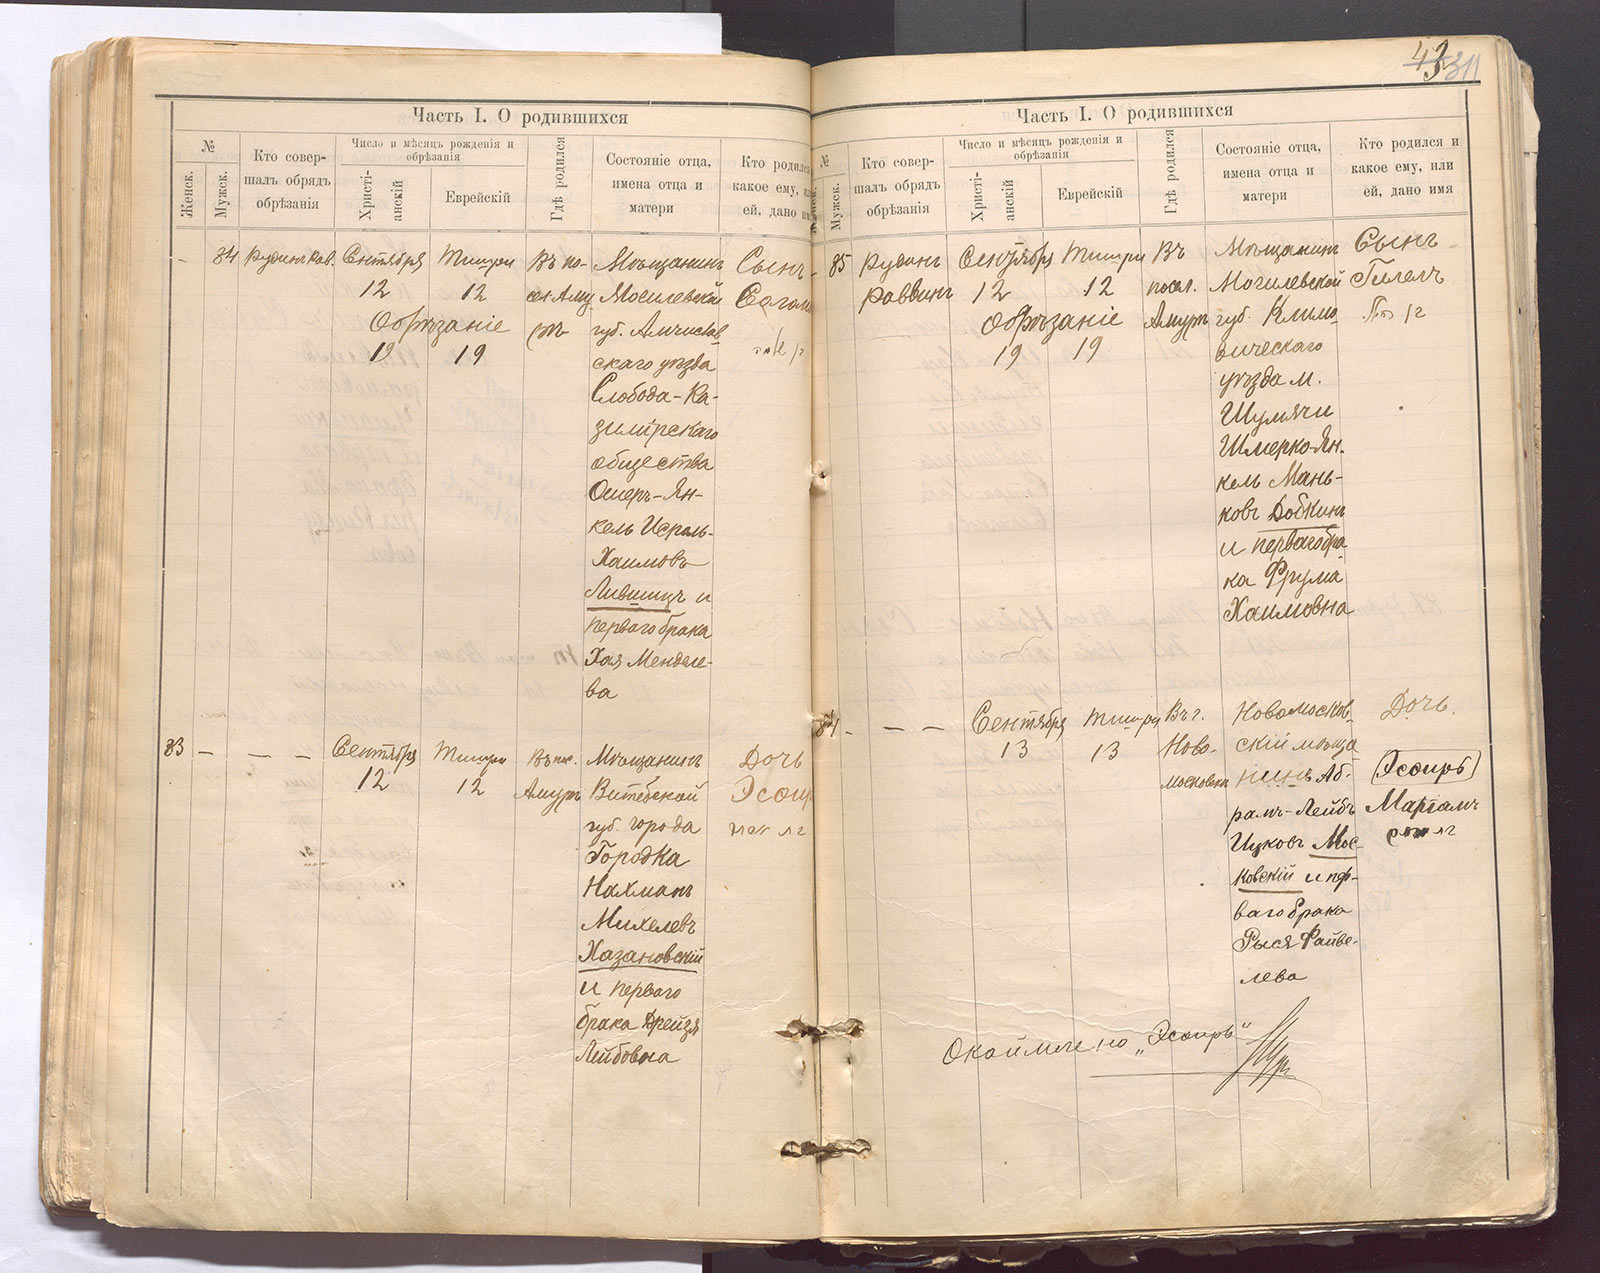 Часть I. О родившихся
№
Женск.
Мужск.
Кто совер-
шалъ обрядъ
обрѣзанія
Число и мѣсяцъ рожденія и
обрѣзанія
Христі-
анскій
Еврейскій
Гдѣ родился
Состояніе отца,
имена отца и
матери
Кто родился
какое ему, или
ей, дано имя
84
Сентября
12
Обрѣзаніе
19
Тишри
12
19
Въ по-
Мѣщанинъ
Могилевской
губ. Амчислав
скаго уѣзда
Слобода-Ка-
зимірскаго
общества
Ошеръ-Ян-
кель Исроль-
Хаимовъ
Лившицъ и
перваго брака
Хая Менделе-
ва
Сынъ
83
Сентября
12
Тишри
12
Въ пос.
Амуръ
Мѣщанинъ
Витебской
губ. города
Городка
Нахманъ
Михелевъ
Хазановскій
и перваго
брака Дрейзя
Лейбовна
Дочь
43
311
Часть I. О родившихся
№
Мужск.
Кто совер-
шалъ обрядъ
обрѣзанія
Число и мѣсяцъ рожденія и
обрѣзанія
Христі-
анскій
Еврейскій
Гдѣ родился
Состояніе отца,
имена отца и
матери
Кто родился и
какое ему, или
ей, дано имя
85
Рудинъ
раввинъ
Сентября
12
Обрѣзаніе
19
Тишри
12
19
Въ
посел.
Амуръ
Мѣщанинъ
Могилевской
губ. Климо-
вическаго
уѣзда м.
Шумячи
Шмерко-Ян-
кель Мань-
ковъ Добкинъ
и перваго бра
ка Фрума
Хаимовна
Сынъ
Гилелъ
84
Сентября
13
Тишри
13
Въ г.
Ново-
московскѣ
Новомосков-
скій мѣща
нинъ Аб-
рамъ-Лейбъ
Ицковъ Мос-
ковскій и пер-
ваго брака
Рыся Файве-
лева
Дочь
(Эсѳирь)
Маріамъ
Окаймлено „Эсѳирь“